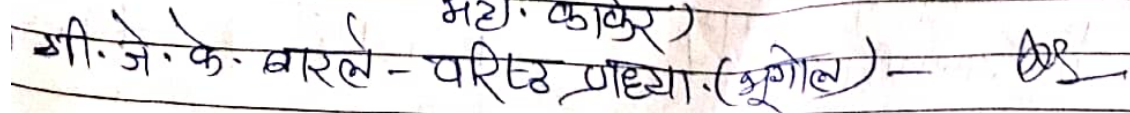 महा. कांकेर)
श्री. जे. के. बारले - वरिष्ठ प्राध्या. (भूगोल) -